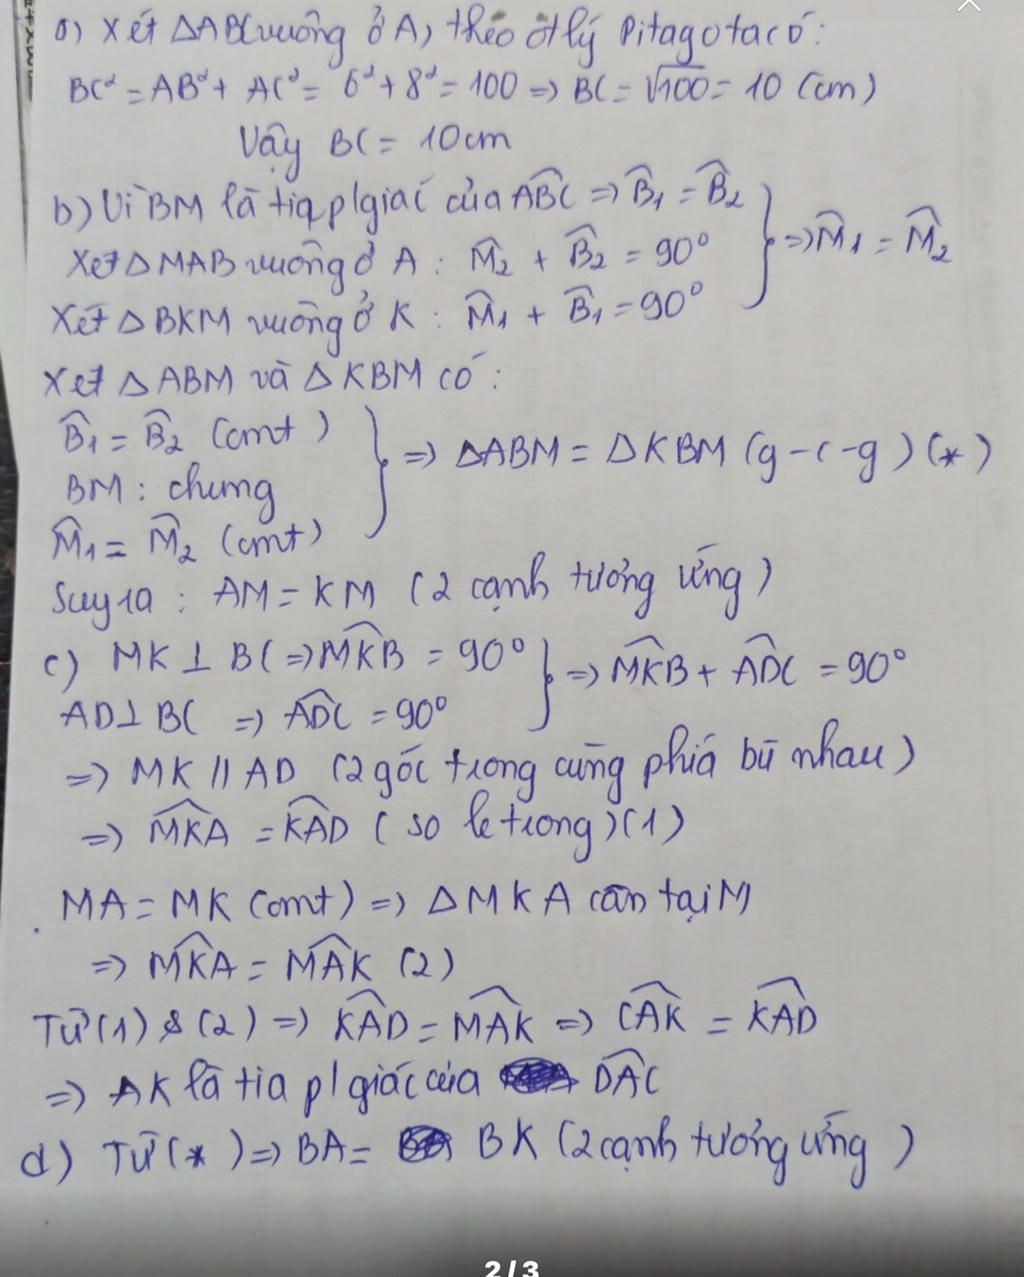 a) Xét ΔABC vuông ở A, theo đlý Pitago ta có:
BC² = AB² + AC² = 6² + 8² = 100 => BC = √100 = 10 (cm)
Vậy BC = 10cm
b) Vì BM là tia p/giác của ABC => B1 = B2
Xét Δ MAB vuông ở A : M2 + B2 = 90° => M1 = M2
Xét Δ BKM vuông ở K : M1 + B1 = 90°
Xét Δ ABM và Δ KBM có :
B1 = B2 (cmt)
BM : chung => ΔABM = ΔKBM (g-c-g) (*)
M1 = M2 (cmt)
Suy ra : AM = KM (2 cạnh tương ứng)
c) MK ⊥ BC => MKB = 90° => MKB + ADC = 90°
AD ⊥ BC => ADC = 90°
=> MK // AD (2 góc trong cùng phía bù nhau)
=> MKA = KAD (so le trong) (1)
MA = MK (cmt) => Δ MKA cân tại M
=> MKA = MAK (2)
Từ (1) & (2) => KAD = MAK => CAK = KAD
=> AK là tia p/giác của DAC
d) Từ (*) => BA = BK (2 cạnh tương ứng)
2/3